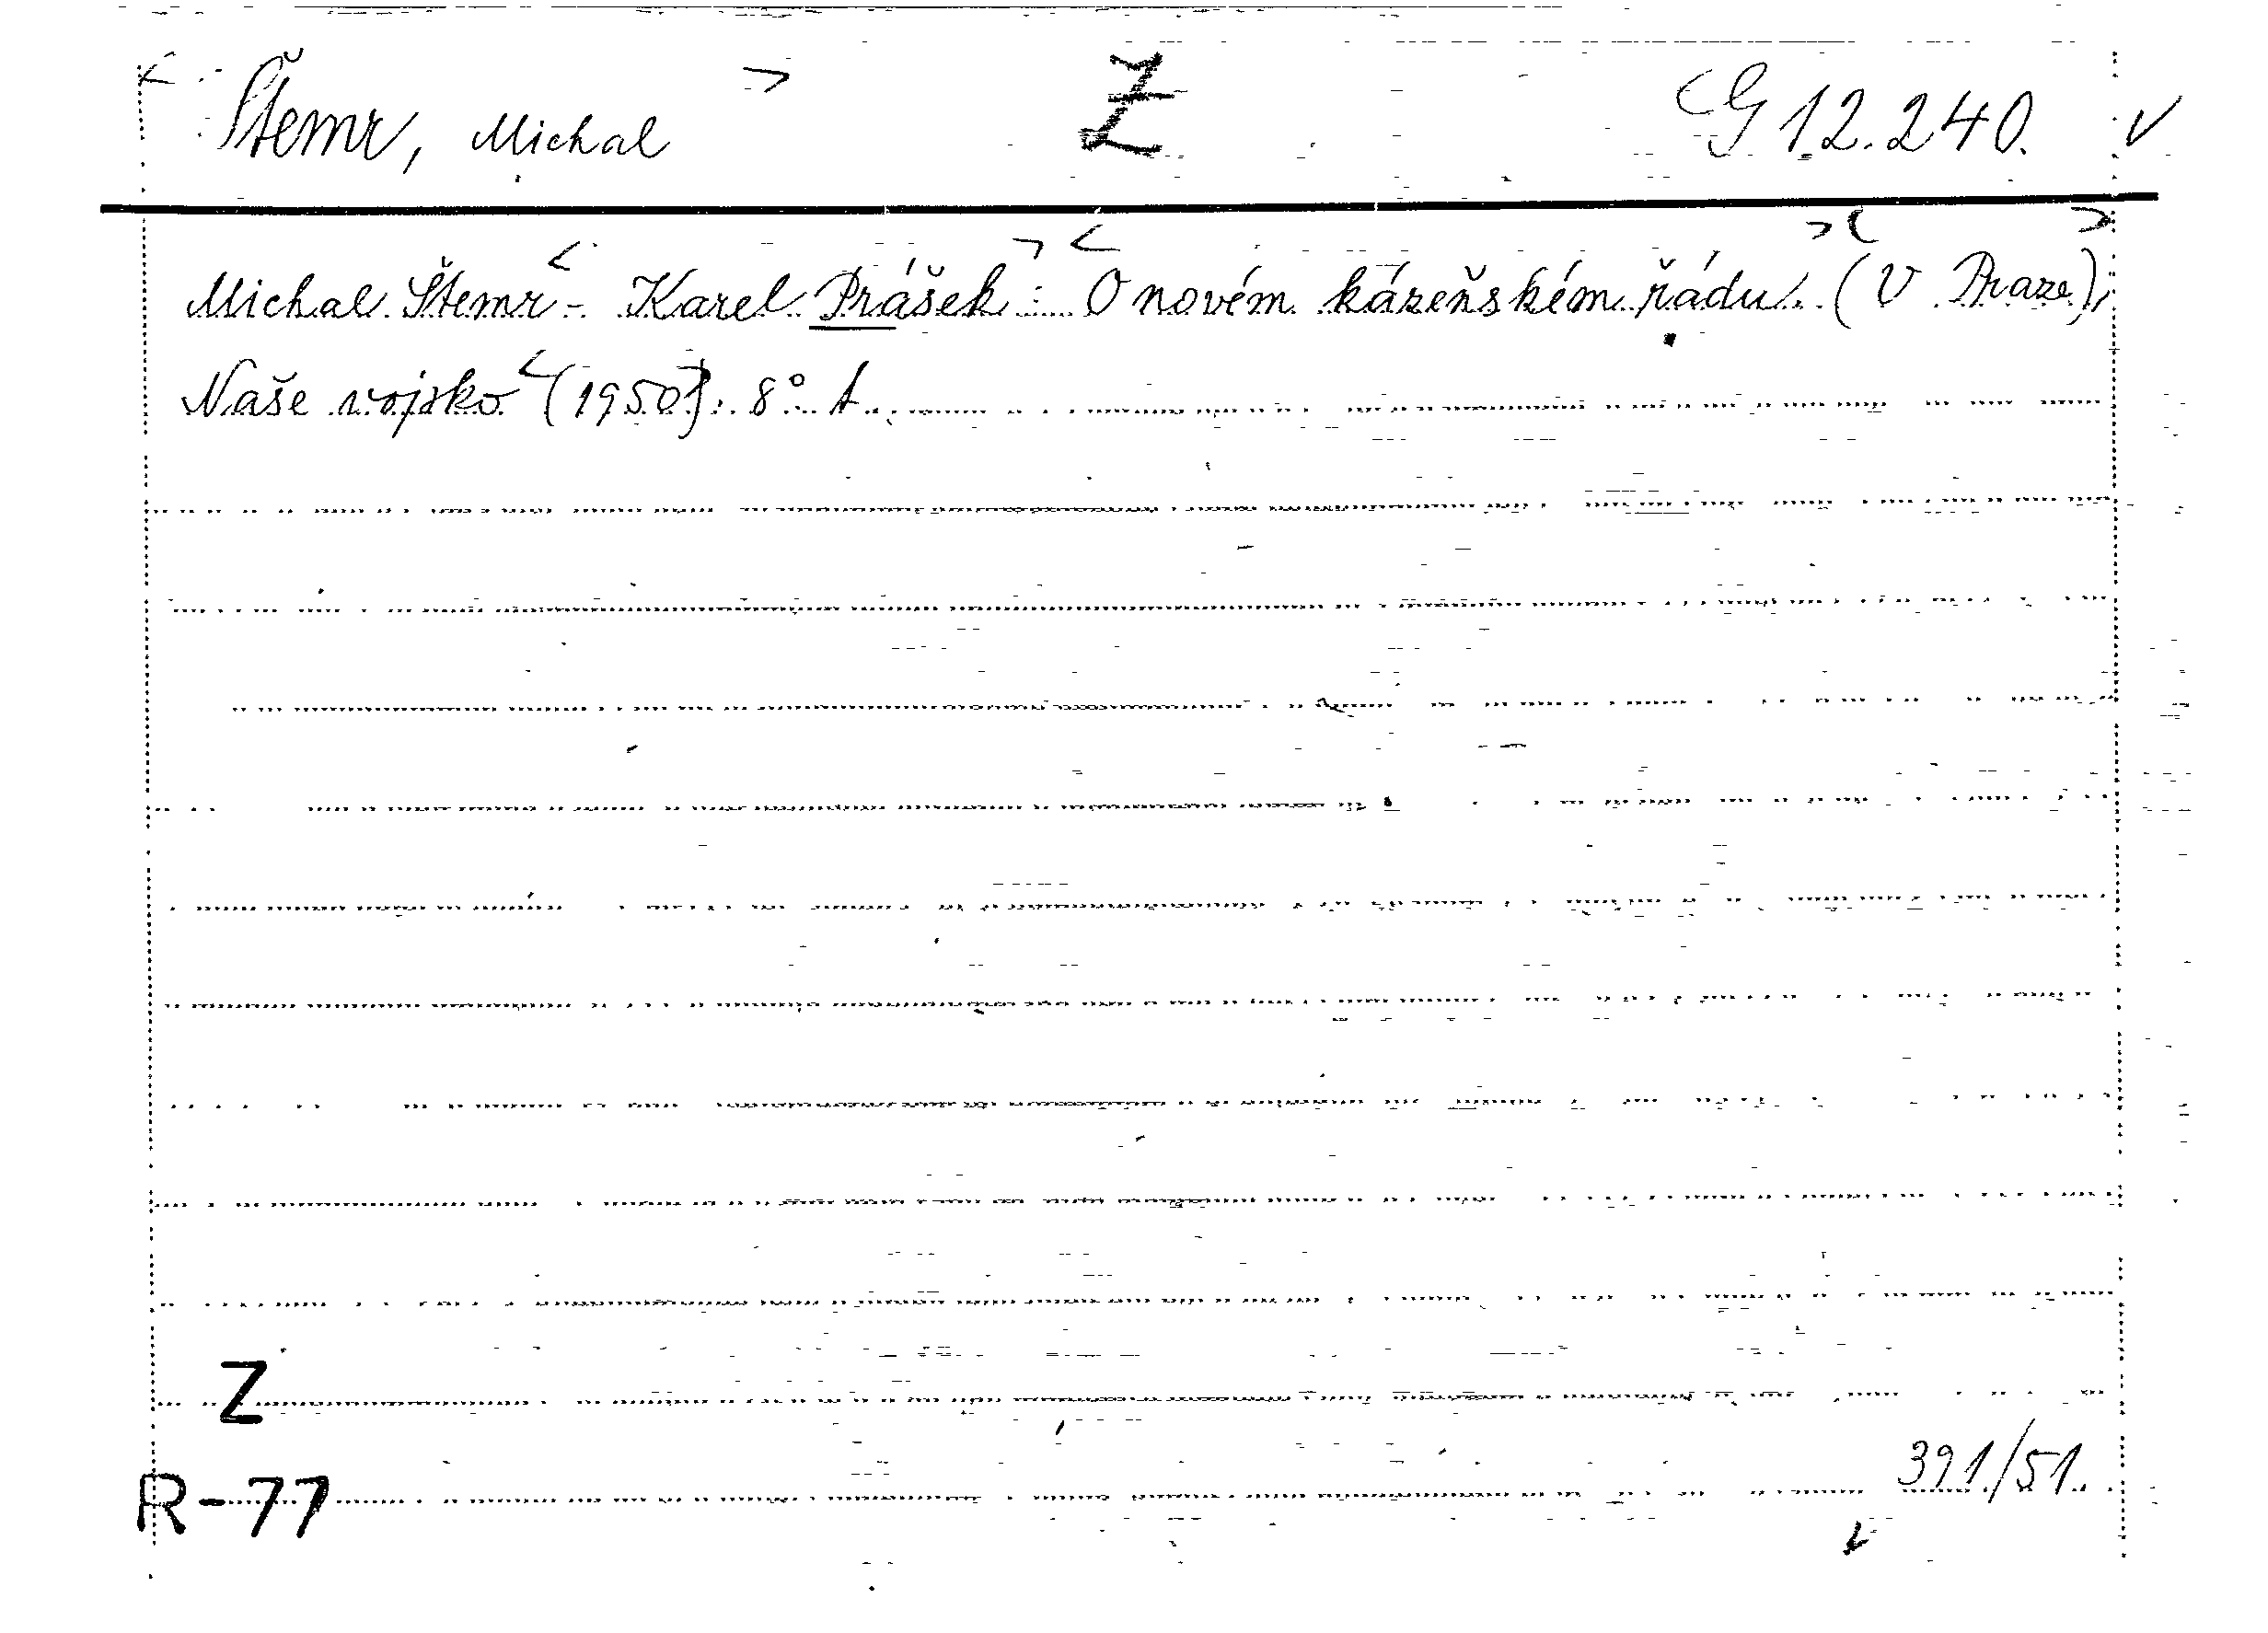 Štemr, Michal Z G 12.240. v
Michal Štemr - Karel Prášek: O novém kázeňském řádu. (V Praze),
Naše vojsko (1950). 8° A
Z
391/51.
R-77